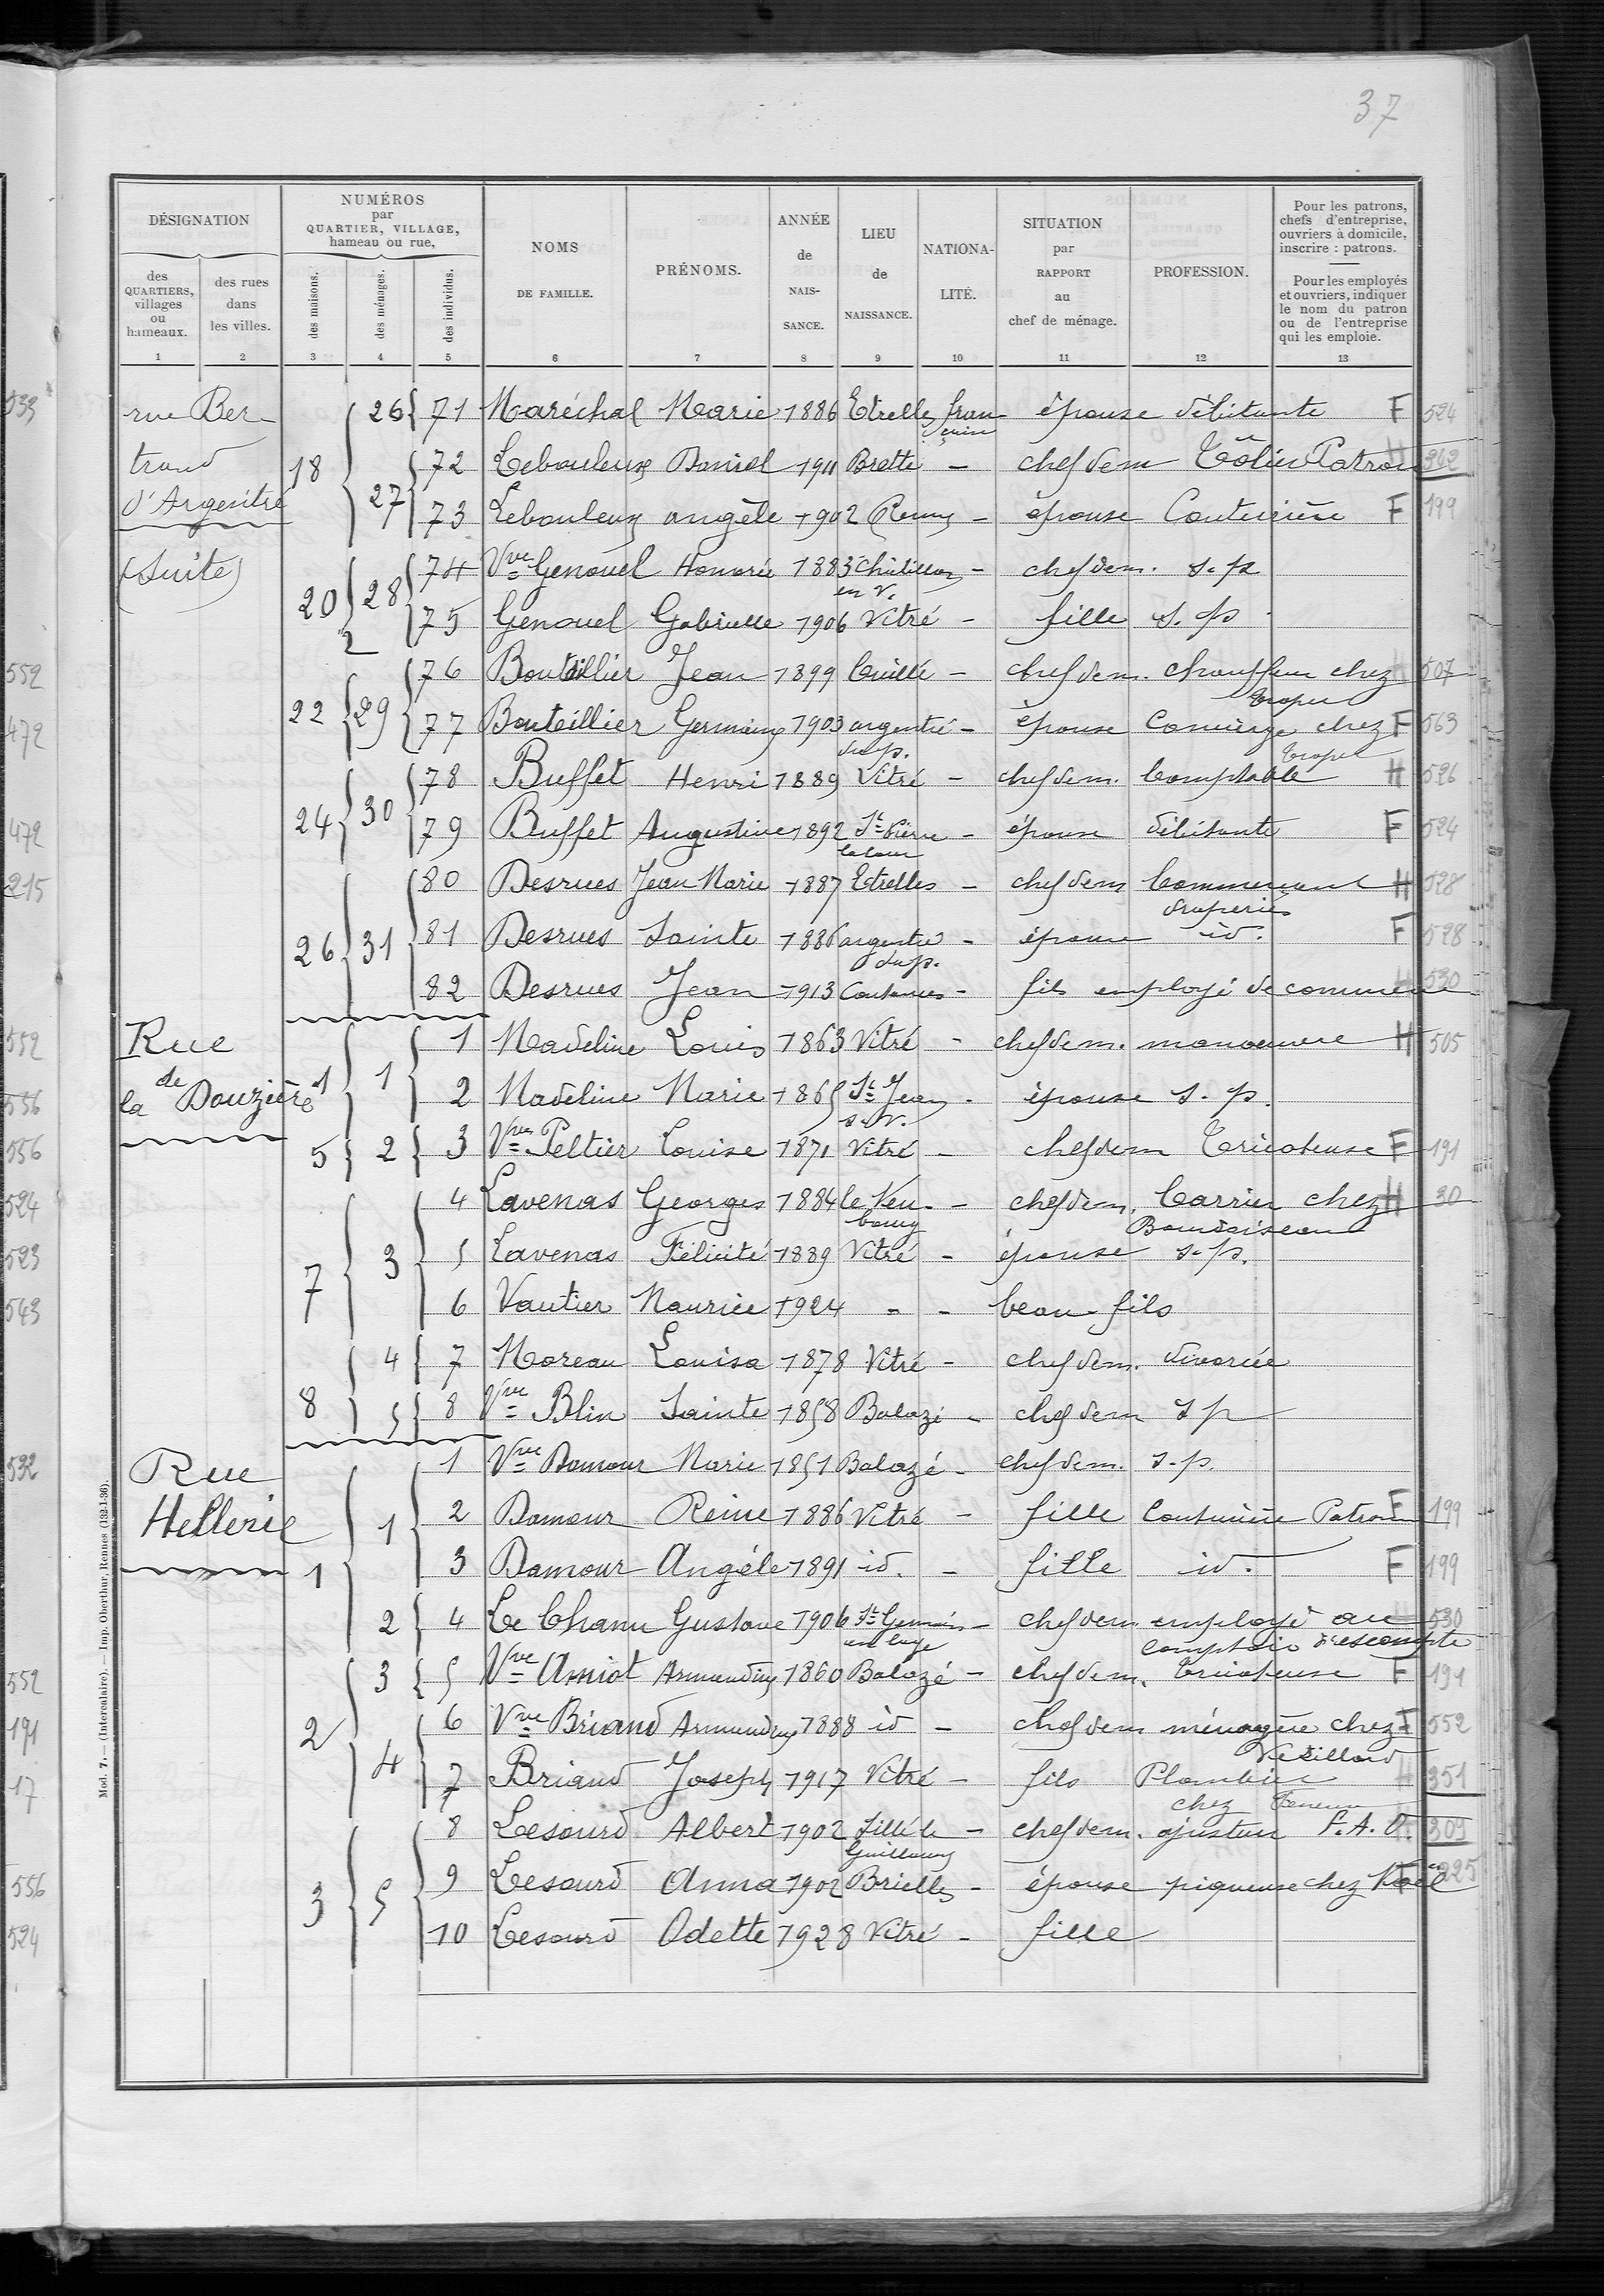 37
DÉSIGNATION
des QUARTIERS, villages ou hameaux.
des rues dans les villes.
NUMÉROS par QUARTIER, VILLAGE, hameau ou rue,
des maisons.
des ménages.
des individus.
NOMS DE FAMILLE.
PRÉNOMS.
ANNÉE de NAIS-SANCE.
LIEU de NAISSANCE.
NATIONA-LITÉ.
SITUATION par RAPPORT au chef de ménage.
PROFESSION.
Pour les patrons, chefs d'entreprise, ouvriers à domicile, inscrire : patrons.
Pour les employés et ouvriers, indiquer le nom du patron ou de l'entreprise qui les emploie.
1 2 3 4 5 6 7 8 9 10 11 12 13
rue Ber- 26 71 Maréchal Marie 1886 Etrelles fran- çaise épouse débitante F 524
trand 18 72 Lebouleux Daniel 1911 Brette - chef de m Tôlier Patron 362
d'Argentré 27 73 Lebouleux Angèle 1902 Rennes - épouse Couturière F 199
(Suite) 28 74 Vve Genouel Honorée 1883 Châtillon en V. - chef de m. s.p
20 75 Genouel Gabrielle 1906 Vitré - fille s.p
2
76 Bouteillier Jean 1899 Cuillé - chef de m. chauffeur chez Tropel 507
22 29 77 Bouteillier Germaine 1903 argentré du p. - épouse Concierge chez Tropel F 563
78 Buffet Henri 1889 Vitré - chef de m. Comptable H 526
24 30 79 Buffet Augustine 1892 St Pierre la cour - épouse débitante F 524
80 Desrues Jean Marie 1887 Etrelles - chef de m Commerçant draperies H 528
26 31 81 Desrues Sainte 1886 argentré du p. - épouse id. F 528
82 Desrues Jean 1913 Coutances - fils employé de commerce 530
Rue 1 Madeline Louis 1863 Vitré - chef de m. manoeuvre H 505
de la Douzière 1 1 2 Madeline Marie 1865 St Jean s.V. - épouse s.p.
5 2 3 Vve Peltier Louise 1871 Vitré - chef de m Tricoteuse F 191
4 Lavenas Georges 1884 le Neu- bourg - chef de m. Carrier chez Bourdaiseau H 30
7 3 5 Lavenas Félicité 1889 Vitré - épouse s.p.
6 Vautier Maurice 1924 - - beau-fils
4 7 Moreau Louisa 1878 Vitré - chef de m. divorcée
8 5 8 Vve Blin Sainte 1858 Balazé - chef de m s p
Rue 1 Vve Damour Marie 1851 Balazé - chef de m. s.p.
Hellerie 1 2 Damour Reine 1886 Vitré - fille Couturière Patron F 199
1 3 Damour Angèle 1891 id. - fille id. F 199
2 4 Le Chanu Gustave 1906 St Germain en laye - chef de m employé au comptoir d'escompte 530
3 5 Vve Amiot Armandine 1860 Balazé - chef de m. Tricoteuse F 191
2 6 Vve Briand Armandine 1888 id - chef de m ménagère chez F 552
4 7 Briand Joseph 1917 Vitré - fils Plombier chez 351
8 Lesourd Albert 1902 Sillé le Guillaume - chef de m. ajusteur 309
3 5 9 Lesourd Anna 1902 Brielles - épouse piqueuse chez Noël 225
10 Lesourd Odette 1928 Vitré - fille
Mod. 7. — (Intercalaire). — Imp. Oberthur, Rennes (132-1-36).
552
472
472
215
552
556
556
524
523
543
532
552
191
17
556
524